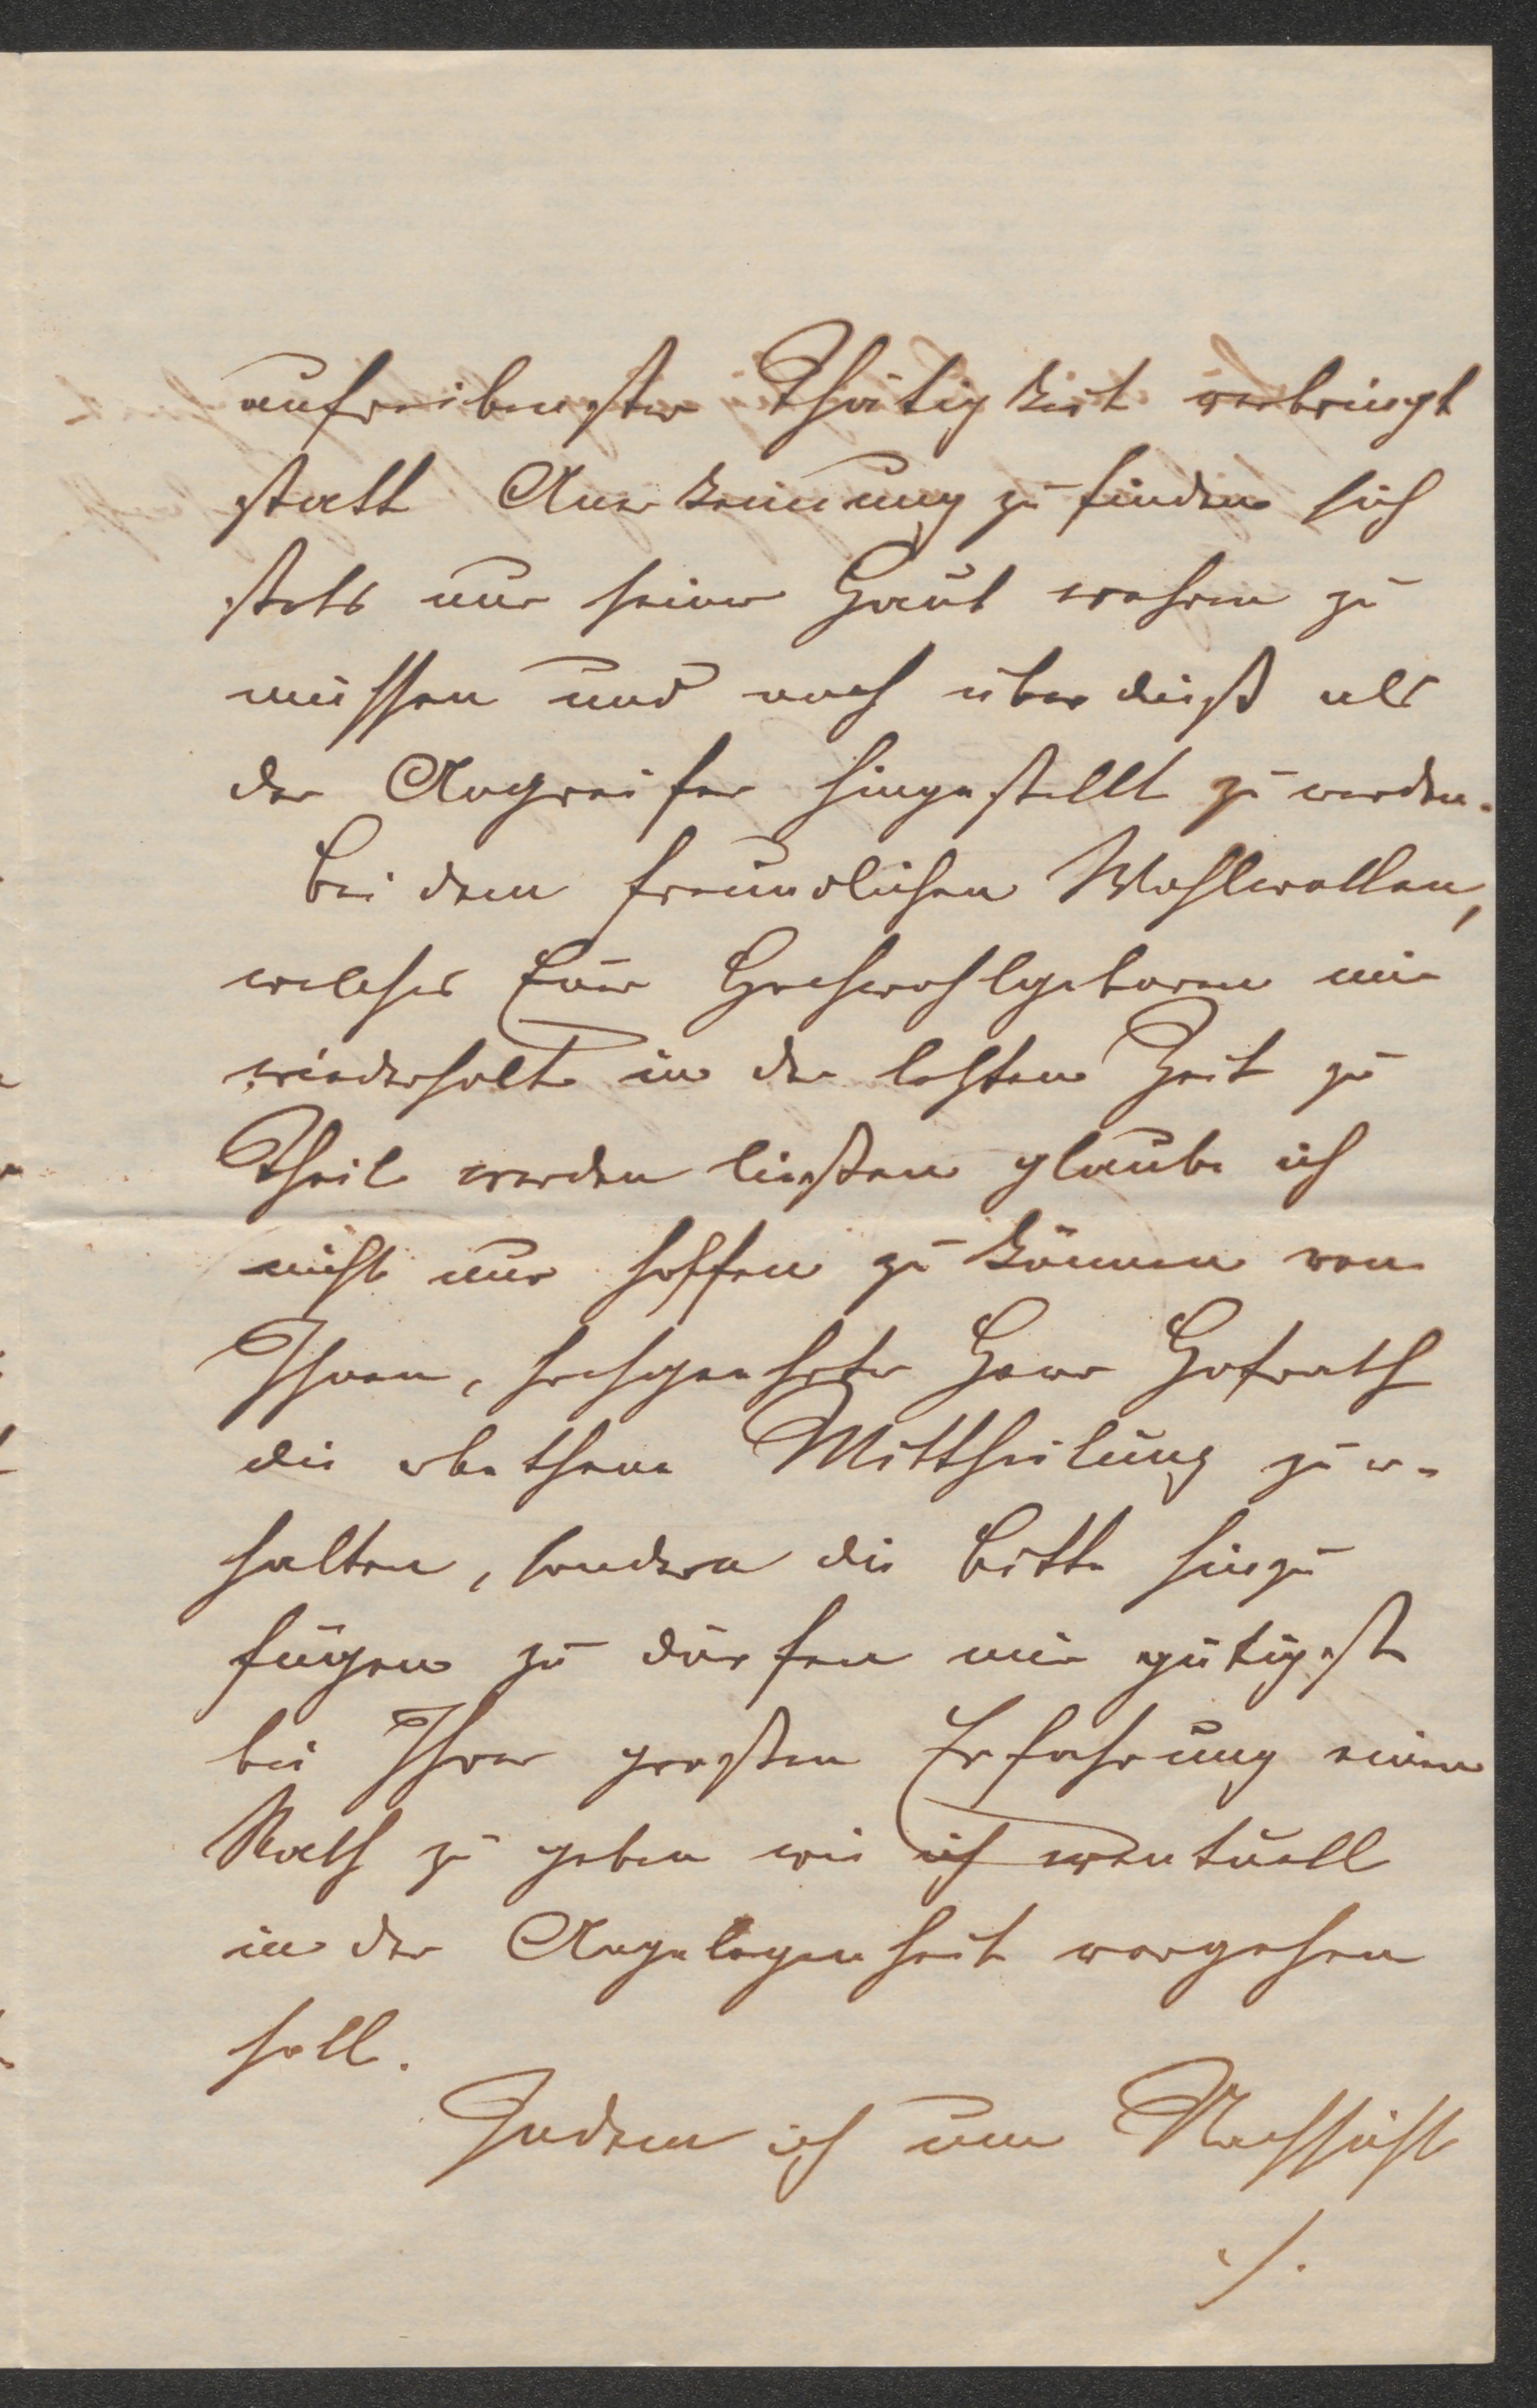 aufreibenster Thätigkeit verbringt
statt Anerkennung zu finden sich
stets nur seiner Haut wehren zu
müssen und noch überdieß als
der Angreifer hingestellt zu werden.
Bei dem freundlichen Wohlwollen,
welches Euer Hochwohlgeboren mir
wiederholt in der letzten Zeit zu
Theil werden ließen glaube ich
nicht nur hoffen zu können von
Ihnen, hochgeehrter Herr Hofrath
die erbethene Mittheilung zu er-
halten, sondern die Bitte hinzu
fügen zu dürfen mir gütigst
bei Ihrer großen Erfahrung einen
Rath zu geben wie ich eventuell
in der Angelegenheit vorgehen
soll.
Indem ich um Nachsicht
./.